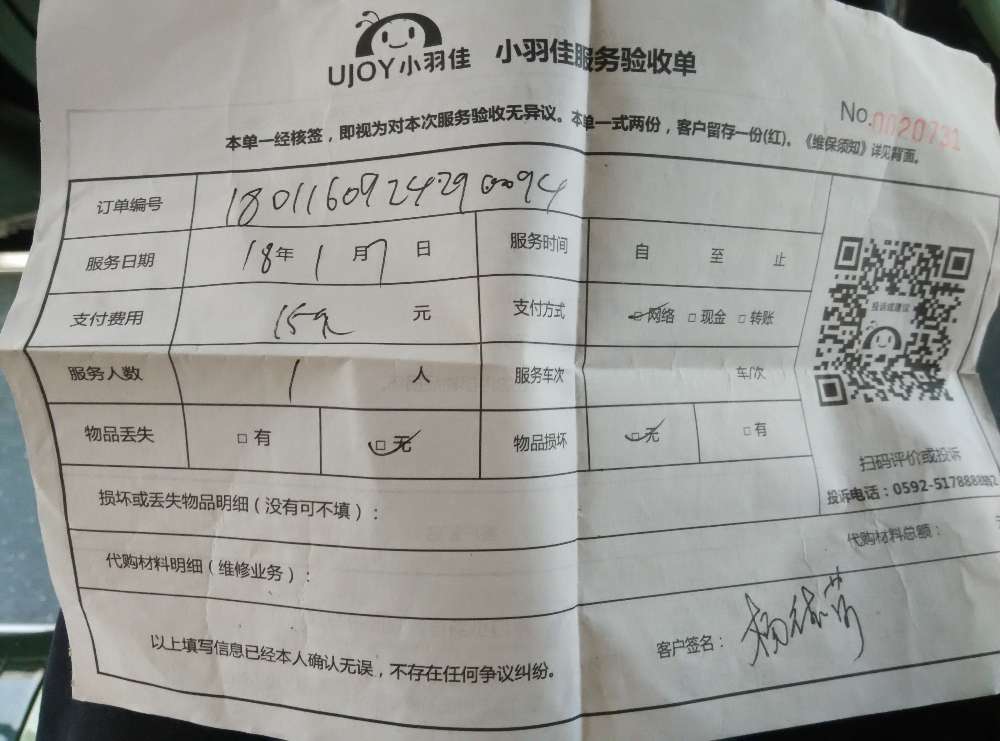 UJOY小羽佳 小羽佳服务验收单
No.0020731
本单一经核签，即视为对本次服务验收无异议。本单一式两份，客户留存一份(红)。《维保须知》详见背面。
订单编号 1801160924290094
服务日期 18年 1 月 7 日 服务时间 自 至 止
支付费用 元 支付方式 □网络 □现金 □转账
投诉或建议
服务人数 1 人 服务车次 车/次
物品丢失 □有 □无 物品损坏 □无 □有
扫码评价或投诉
投诉电话：0592-5178888
损坏或丢失物品明细（没有可不填）：
代购材料明细（维修业务）： 代购材料总额：
以上填写信息已经本人确认无误，不存在任何争议纠纷。 客户签名：